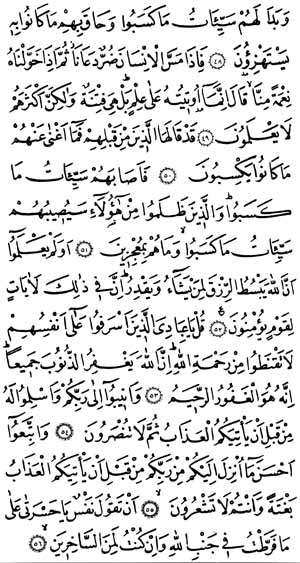 وَبَدَا لَهُمْ سَيِّئَاتُ مَا كَسَبُوا وَحَاقَ بِهِمْ مَا كَانُوا بِهِ
يَسْتَهْزِؤُنَ ﴿٤٨﴾ فَاِذَا مَسَّ الْاِنْسَانَ ضُرٌّ دَعَانَاۘ ثُمَّ اِذَا خَوَّلْنَاهُ
نِعْمَةً مِنَّاۙ قَالَ اِنَّمَٓا اُو۫ت۪يتُهُ عَلٰى عِلْمٍۜ بَلْ هِيَ فِتْنَةٌ وَلٰكِنَّ اَكْثَرَهُمْ
لَا يَعْلَمُونَ ﴿٤٩﴾ قَدْ قَالَهَا الَّذ۪ينَ مِنْ قَبْلِهِمْ فَمَٓا اَغْنٰى عَنْهُمْ
مَا كَانُوا يَكْسِبُونَ ﴿٥٠﴾ فَاَصَابَهُمْ سَيِّئَاتُ مَا
كَسَبُواۜ وَالَّذ۪ينَ ظَلَمُوا مِنْ هٰٓؤُ۬لَٓاءِ سَيُص۪يبُهُمْ
سَيِّئَاتُ مَا كَسَبُواۙ وَمَا هُمْ بِمُعْجِز۪ينَ ﴿٥١﴾ اَوَلَمْ يَعْلَمُٓوا
اَنَّ اللّٰهَ يَبْسُطُ الرِّزْقَ لِمَنْ يَشَٓاءُ وَيَقْدِرُۜ اِنَّ ف۪ي ذٰلِكَ لَاٰيَاتٍ
لِقَوْمٍ يُؤْمِنُونَ ﴿٥٢﴾ قُلْ يَا عِبَادِيَ الَّذ۪ينَ اَسْرَفُوا عَلٰٓى اَنْفُسِهِمْ
لَا تَقْنَطُوا مِنْ رَحْمَةِ اللّٰهِۜ اِنَّ اللّٰهَ يَغْفِرُ الذُّنُوبَ جَم۪يعًاۜ
اِنَّهُ هُوَ الْغَفُورُ الرَّح۪يمُ ﴿٥٣﴾ وَاَن۪يبُٓوا اِلٰى رَبِّكُمْ وَاَسْلِمُوا لَهُ
مِنْ قَبْلِ اَنْ يَأْتِيَكُمُ الْعَذَابُ ثُمَّ لَا تُنْصَرُونَ ﴿٥٤﴾ وَاتَّبِعُٓوا
اَحْسَنَ مَٓا اُنْزِلَ اِلَيْكُمْ مِنْ رَبِّكُمْ مِنْ قَبْلِ اَنْ يَأْتِيَكُمُ الْعَذَابُ
بَغْتَةً وَاَنْتُمْ لَا تَشْعُرُونَۙ ﴿٥٥﴾ اَنْ تَقُولَ نَفْسٌ يَا حَسْرَتٰى عَلٰى
مَا فَرَّطْتُ ف۪ي جَنْبِ اللّٰهِ وَاِنْ كُنْتُ لَمِنَ السَّاخِر۪ينَۙ ﴿٥٦﴾